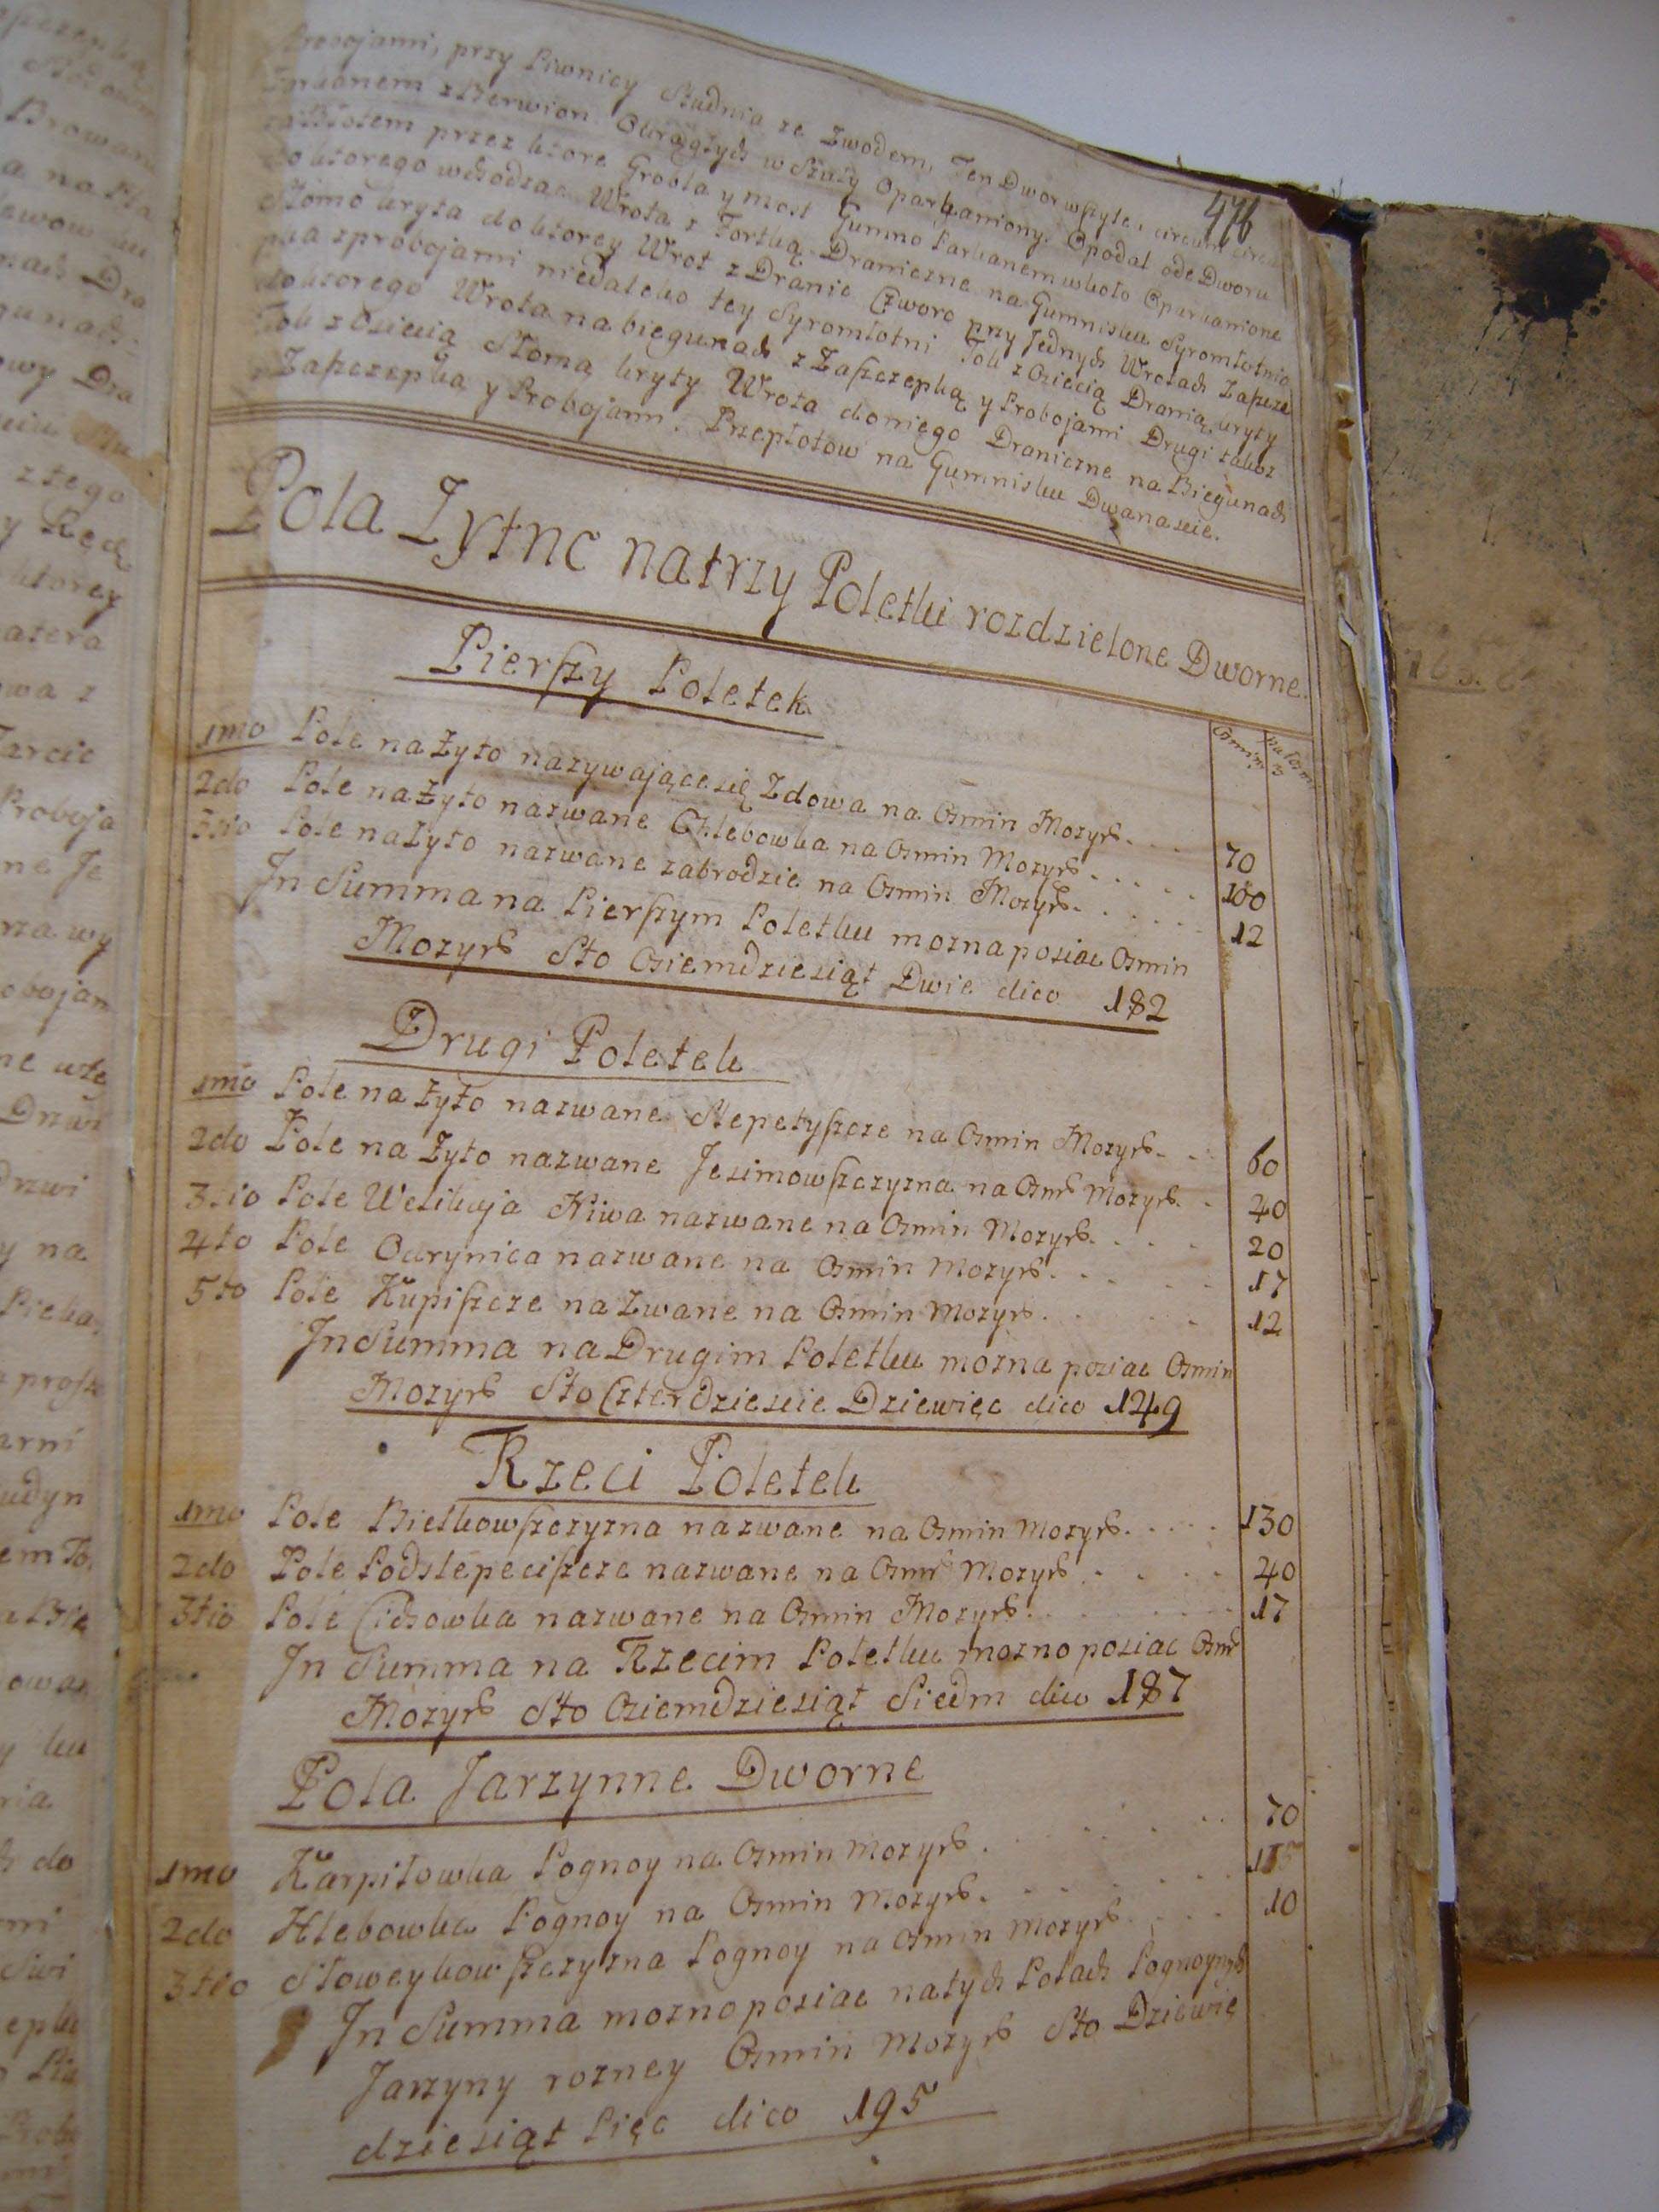 476
Probojami, przy Piwnicy Studnia ze Zwodem, Ten Dwor wszytek circum circa
Parkanem z Berwion Okrągłych w Słupy Oparkaniony. Opodal ode Dworu
za Błotem przez ktore Grobla y most Gumno Parkanem wkoło Oparkanione
do ktorego wchodząc Wrota z Fortką Draniczne na Gumnisku Syromłotnia
Słomo kryta do ktorey Wrot z Dranic Czworo przy Jednych Wrotach Zaszcze
pka z probojami niedaleko tey Syromłotni Tok z Osiecią Dranią kryty
do ktorego Wrota na biegunach z Zaszczepką y Probojami Drugi takoz
Tok z Osiecią Słomą kryty Wrota doniego Draniczne na Biegunach
Zaszczepka y Probojami. Przepłotow na Gumnisku Dwanascie.
Pola Zytne na trzy Poletki rozdzielone Dworne.
Pierszy Poletek
Osmin
1mo Pole na Zyto nazywające się Zdowa na Osmin Mozyrs. 70
2do Pole na Zyto nazwane Chlebowka na Osmin Mozyrs. 100
3tio Pole na Zyto nazwane zabrodzie na Osmin Mozyrs. 12
In Summa na Pierszym Poletku mozna posiac Osmin
Mozyrs Sto Osiemdziesiąt Dwie dico 182
Drugi Poletek
1mo Pole na Zyto nazwane Slepetyszcze na Osmin Mozyrs. 60
2do Pole na Zyto nazwane Jesimowszczyzna na Osmś Mozyrs. 40
3tio Pole Welikaja Niwa nazwane na Osmin Mozyrs. 20
4to Pole Okrynica nazwane na Osmin Mozyrs. 17
5to Pole Kupiszcze nazwane na Osmin Mozyrs. 12
In Summa na Drugim Poletku mozna posiac Osmin
Mozyrs Sto Czterdziescie Dziewięc dico 149
Rzeci Poletek
1mo Pole Bielkowszczyzna nazwane na Osmin Mozyrs. 130
2do Pole Podslepeciszcze nazwane na Osmś Mozyrs. 40
3tio Pole Cichowka nazwane na Osmin Mozyrs. 17
In Summa na Rzecim Poletku mozno posiac Osmś
Mozyrs Sto Osiemdziesiąt Siedm dico 187
Pola Jarzynne Dworne
1mo Karpiłowka Pognoy na Osmin Mozyrs. 70
2do Hlebowka Pognoy na Osmin Mozyrs. 115
3tio Słoweykowszczyzna Pognoy na Osmin Mozyrs. 10
In Summa mozno posiac na tych Polach Pognoynych
Jarzyny rozney Osmin Mozyrs Sto Dziewię
dziesiąt Pięc dico 195